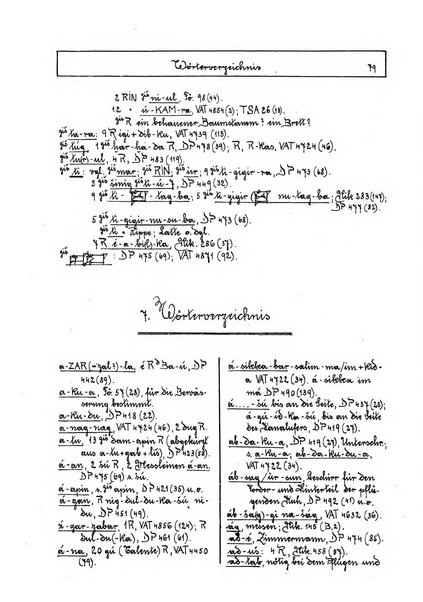 Wörterverzeichnis 79
2 RIN giš ni-ul, Fö. 98 (44).
12 " ù-KAM-ra, VAT 4884 (3); TSA 26 (13).
giš R ein behauener Baumstamm? ein Brett?
giš ta-ra: 9 R igi+dib-ku, VAT 4739 (115).
giš tig, 1 giš har-ha-da R, DP 478 (39); R, R-kas, VAT 4724 (46).
giš túri-ul, 4 R, DP 483 (119).
giš ti: vgl. giš mar; giš RIN; giš ùr; 9 giš ti-gigir-ra, DP 473 (68).
5 giš šinig giš ti-ù-7, DP 449 (32).
9 giš ti- -tag-ba; 5 giš ti-gigir nu-tag-ba; Nik. 283 (147); DP 477 (82).
5 giš ti-gigir-nu-su-ba, DP 473 (68).
giš ti = Rippe; Latte o. dgl.
7 R é-a-bilš-ka, Nik. 286 (57).
giš : DP 475 (69); VAT 4871 (92).
7. Wörterverzeichnis
a-ZAR (=zal?)-la, é R d Ba-ú, DP
442 (89).
a-ku-a, Fö. 57 (28), für die Bewäs-
serung bestimmt.
a-ku-du, DP 418 (22).
a-nag-nag, VAT 4724 (46), 2 dug R.
a-tu, 13 giš dam-apin R (abgekürzt
aus a-tu+gab+liš) DP 423 (58).
á-an, 2 šú R, 2 Messleinen á-an,
DP 475 (69).
á-apin, s. giš apin, DP 421 (35) u. o.
á-gan, R nig-dul-ku-ka-šú ni-
du, DP 451 (49).
á-gar-gabar, 1 R, VAT 4856 (124); R
dul-du-(ka), DP 461 (61).
á-na, 20 gú (Talente) R, VAT 4450
(79).
á-sitkka-bar-salim-ma/im+kid-
a VAT 4722 (34). á-sitkka im
má DP 490 (139).
á....-šú, bis an die Seite, DP 437 (28);
á-gú-id-ka-šú, bis an die Seite
des Kanalufers, DP 419 (27).
ab-da-ku-a, DP 419 (27), Unterschr.;
s. a-ku-a; ab-da-ku-a,
VAT 4722 (34).
áb-sag/úr-sun, Geschirr für den
Vorder- und Hinterteil der pflü-
genden Kuh, DP 492 (47) u. o.
áb-sag(-gi)-na-ság, VAT 4632 (36).
ág, messen; Nik. 145 (B, 2).
ad-é, Zimmermann, DP 474 (85).
ad-uš: 4 R, Nik. 458 (87).
ad-tab, nötig bei dem Pflügen und